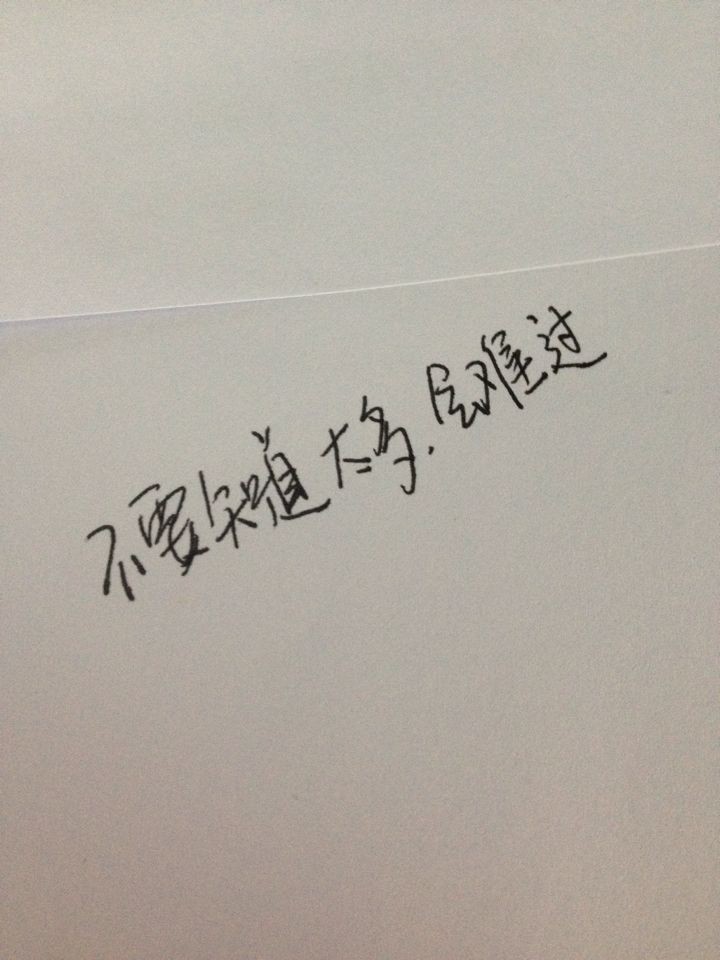 不要知道太多，会难过